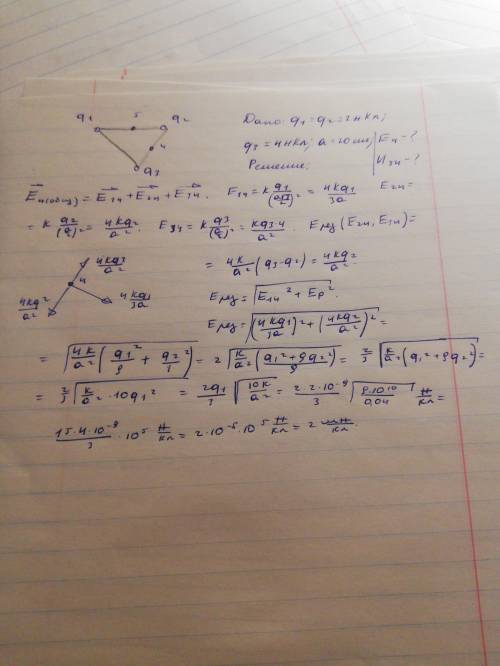 q1 5 q2
4
q3
Дано: q1=q2=2нкл;
q3=4нкл; a=20см; E4-?
Решение;
E4(общ)=E14+E24+E34. E14=k q1/(a√3/2)²=4kq1/3a E24=
=k q2/(a/2)²=4kq2/a². E34=k q3/(a/2)²=kq3·4/a². Eрез(E24,E34)=
4kq3/a²
4
4kq2/a²
4kq1/3a
=4k/a²(q3-q2)=4kq2/a².
Eрез=√E14²+Eр².
Eрез=√(4kq1/3a)²+(4kq2/a²)²=
=√4k/a²(q1²/9+q2²/1)=2√k/a²(q1²+9q2²)/9=2/3√k/a²(q1²+9q2²)=
=2/3√k/a²·10q1²=2q1/3√10k/a²=2·2·10⁻⁹/3·√9·10¹⁰/0,04 Н/кл=
15·4·10⁻⁹/3·10⁵ Н/кл=2·10⁻⁵·10⁵ Н/кл=2 мН/кл.